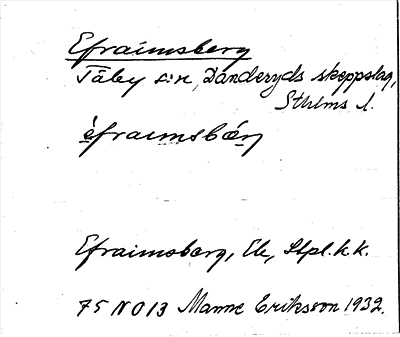 Efraimsberg
Täby s:n, Danderyds skeppslag,
Sthlms l.
èfraimsbær̨j
Efraimsberg, Ek, Stpl.k.k.
75 NO 13 Manne Eriksson 1932.